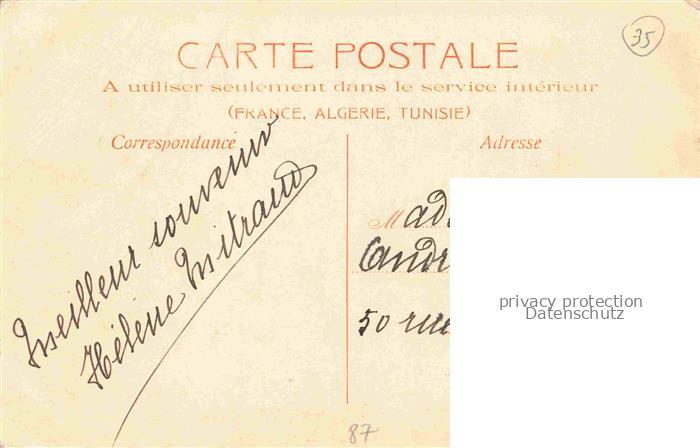 35
CARTE POSTALE
A utiliser seulement dans le service intérieur
(FRANCE, ALGERIE, TUNISIE)
Correspondance
Adresse
Meilleur souvenir
Hélène Mitraud
Mad
Candr
50 rue
privacy protection
Datenschutz
87